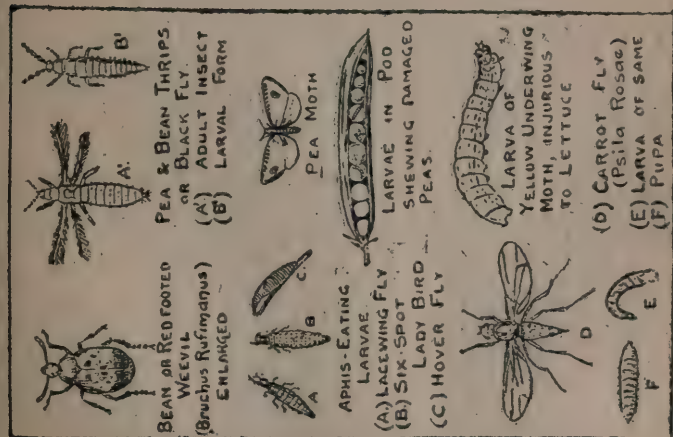 BEAN OR RED FOOTED
WEEVIL
(Bruchus Rufimanus)
ENLARGED
A'.
B'
PEA & BEAN THRIPS.
OR BLACK FLY.
(A') ADULT INSECT
(B') LARVAL FORM
A
B
C.
APHIS-EATING
LARVAE
(A.) LACEWING FLY
(B.) SIX-SPOT
LADY BIRD
(C) HOVER FLY
PEA MOTH
LARVAE IN POD
SHEWING DAMAGED
PEAS.
D
F
E
LARVA OF
YELLOW UNDERWING
MOTH, INJURIOUS
TO LETTUCE
(D) CARROT FLY
(Psila Rosae)
(E) LARVA OF SAME
(F) PUPA